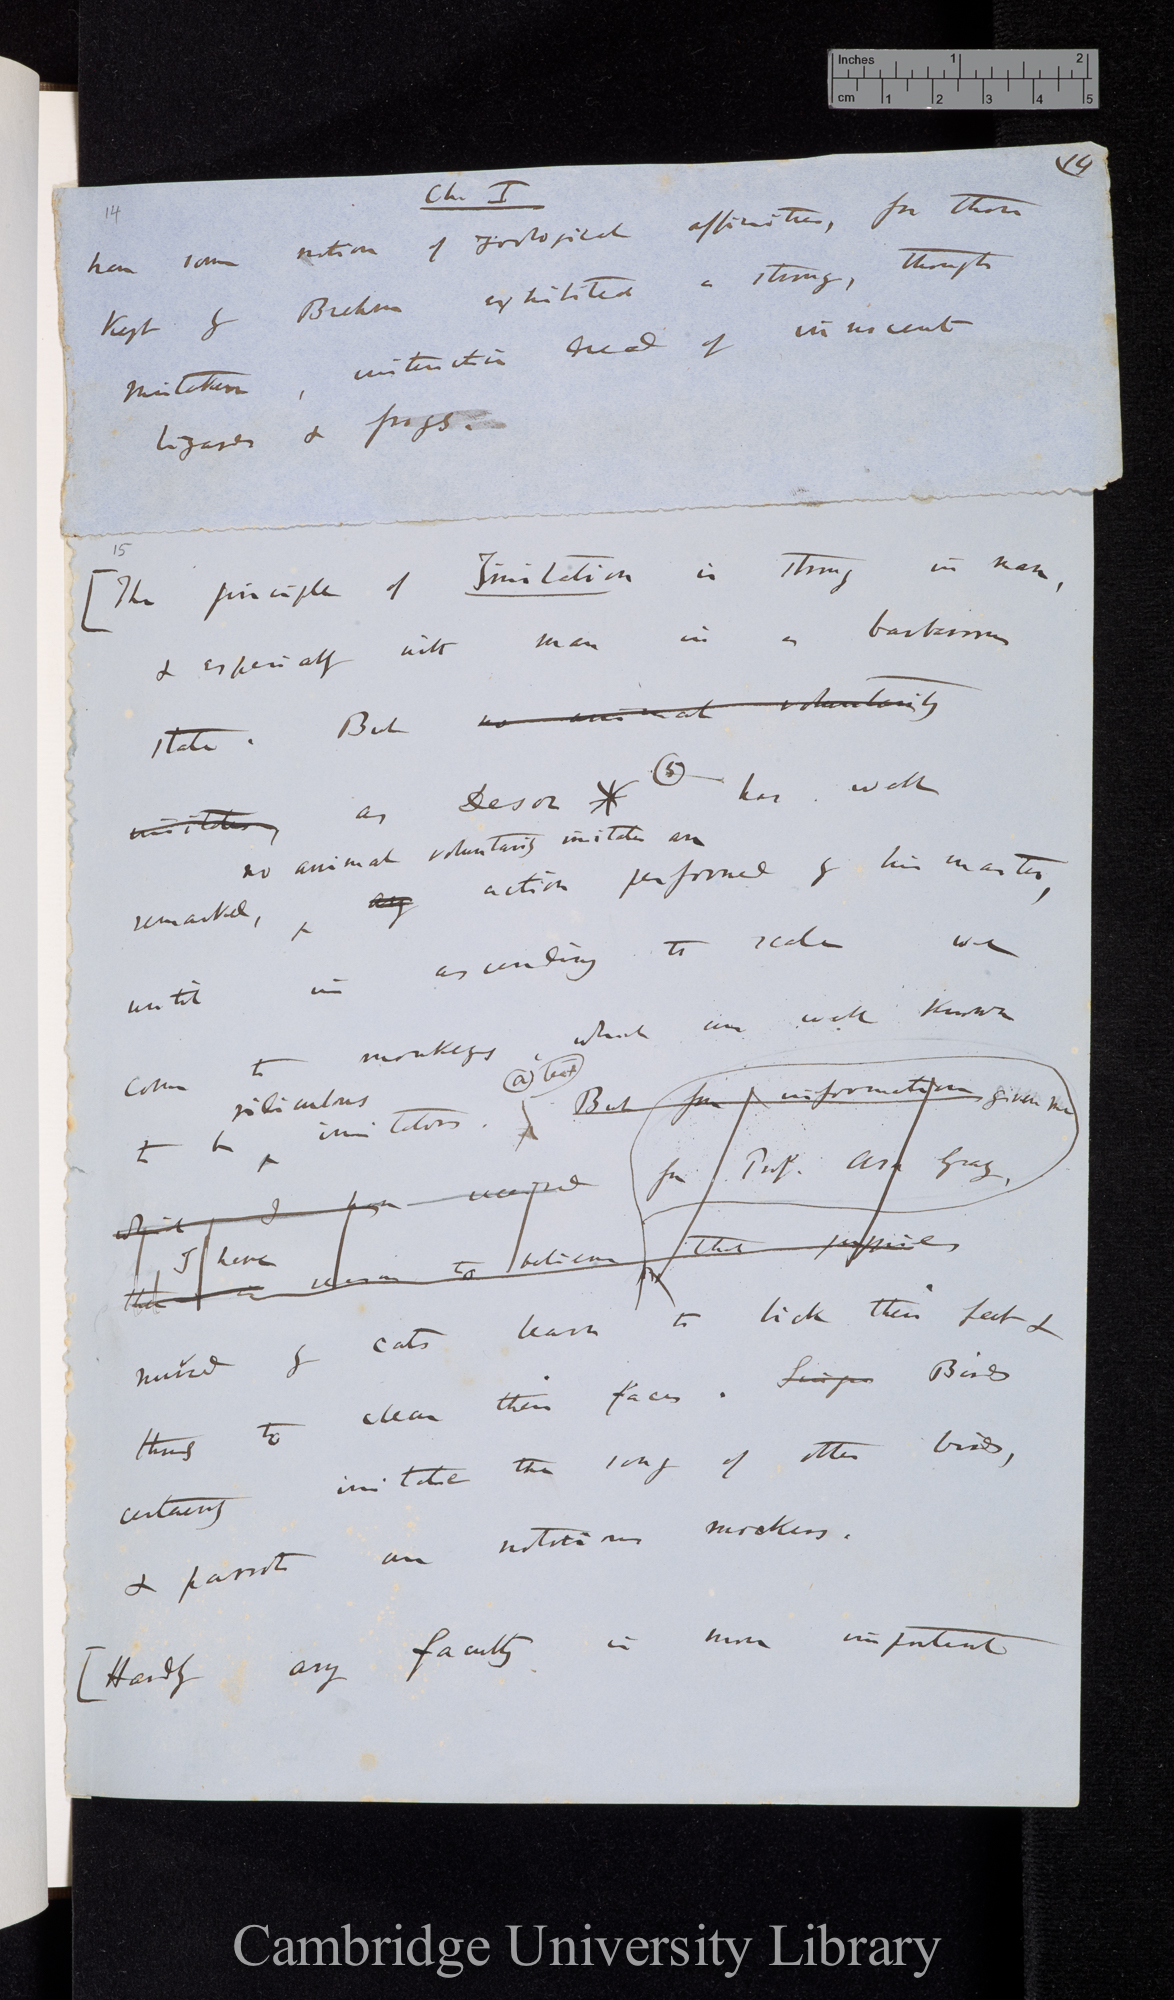 Inches 1 2
cm 1 2 3 4 5
14
14
Ch. I
have some notion of zoological affinities, for those
kept by Brehm exhibited a strong, though
mistaken, instinctive dread of innocent
lizards & frogs.
15
[The principle of Imitation is strong in man,
& especially with man in a barbarous
state. But no animal voluntarily
imitates, as Desor * (5) has well
no animal voluntarily imitates an
remarked, ^ any action performed by his master,
until in ascending the scale we
come to monkeys, which are well known
ridiculous (a) text
to be ^ imitators. But from information given me
by Prof. Asa Gray,
which I have received
I have
there is reason to believe that puppies
nursed by cats learn to lick their feet &
thus to clean their faces. Birds
certainly imitate the song of other birds,
& parrots are notorious mockers.
[Hardly any faculty is more important
Cambridge University Library